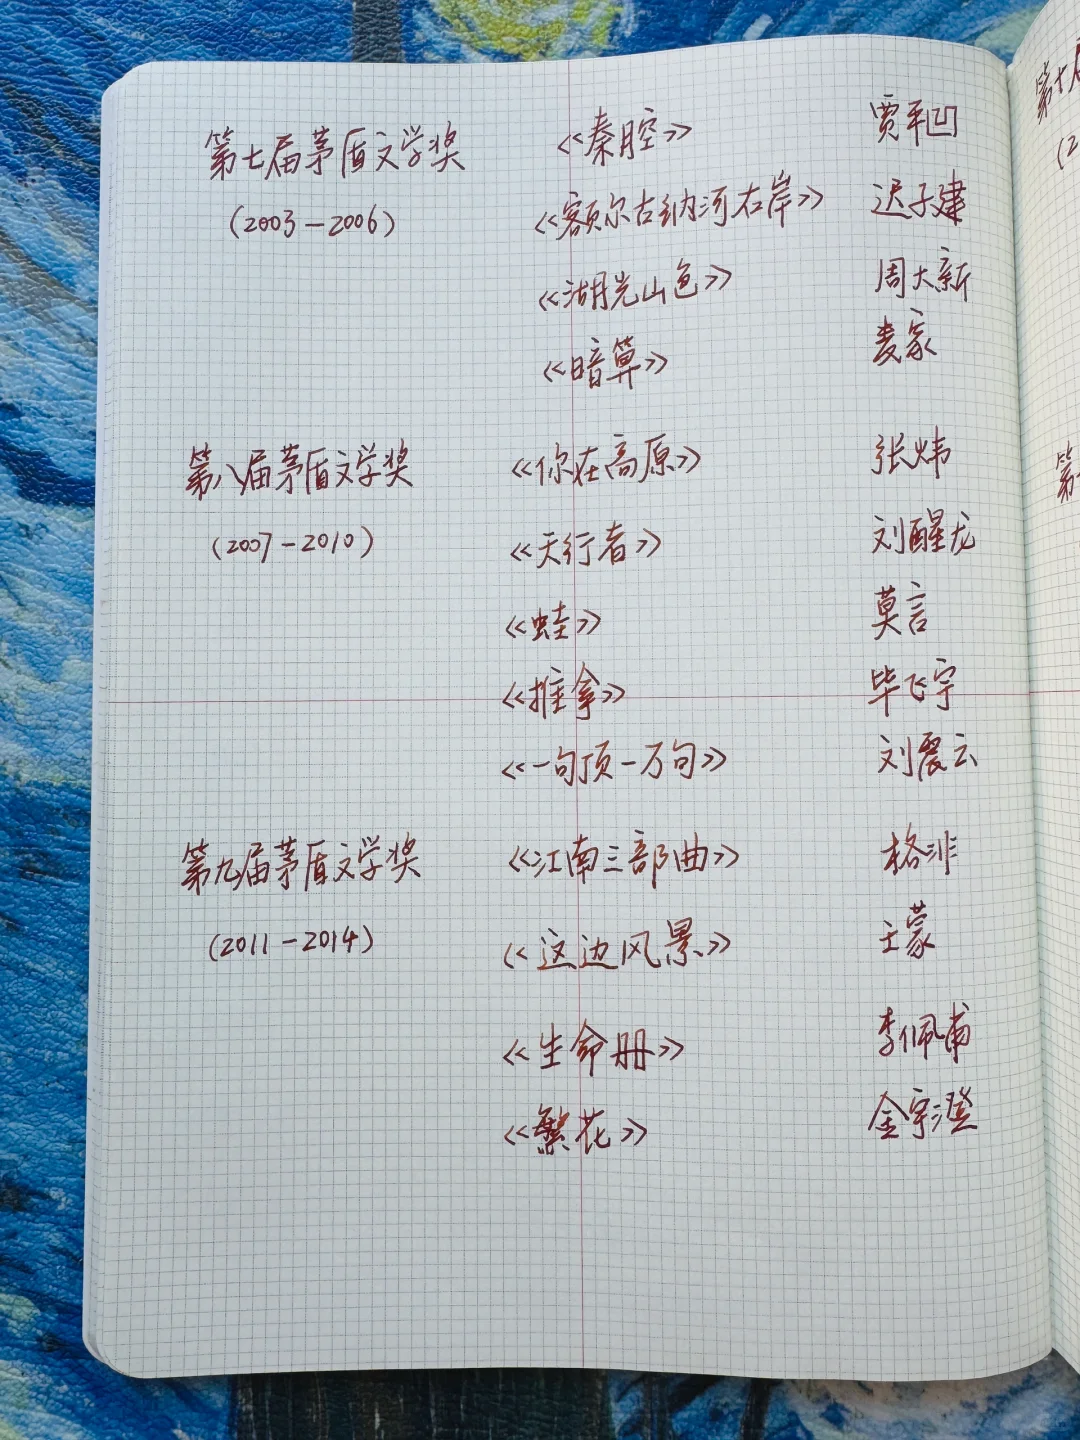 第七届茅盾文学奖 《秦腔》 贾平凹
(2003-2006) 《额尔古纳河右岸》 迟子建
《湖光山色》 周大新
《暗算》 麦家
第八届茅盾文学奖 《你在高原》 张炜
(2007-2010) 《天行者》 刘醒龙
《蛙》 莫言
《推拿》 毕飞宇
《一句顶一万句》 刘震云
第九届茅盾文学奖 《江南三部曲》 格非
(2011-2014) 《这边风景》 王蒙
《生命册》 李佩甫
《繁花》 金宇澄
第十
(2
第